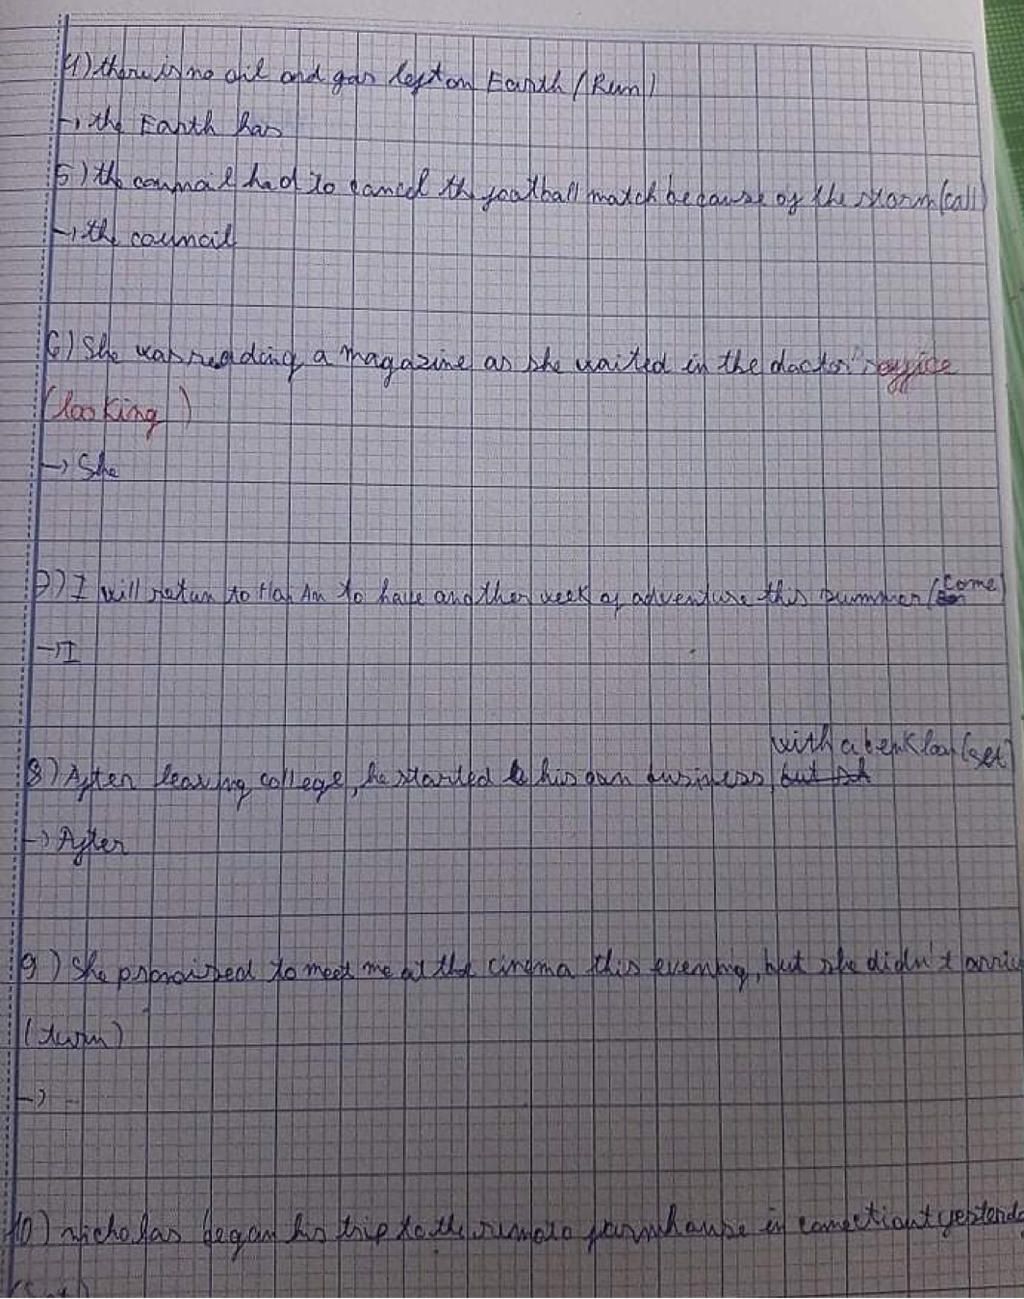 4) there is no oil and gas left on Earth (Run)
→ the Earth has
5) the council had to cancel the football match because of the storm (call)
→ the council
6) She was reading a magazine as she waited in the doctor's office
(looking)
→ She
7) I will return to Hoi An to have another week of adventure this summer (come)
→ I
with a bank loan (set)
8) After leaving college, he started his own business,
→ After
9) She promised to meet me at the cinema this evening, but she didn't arriv
(turn)
→
10) Nicholas began his trip to the remote farmhouse in yesterda